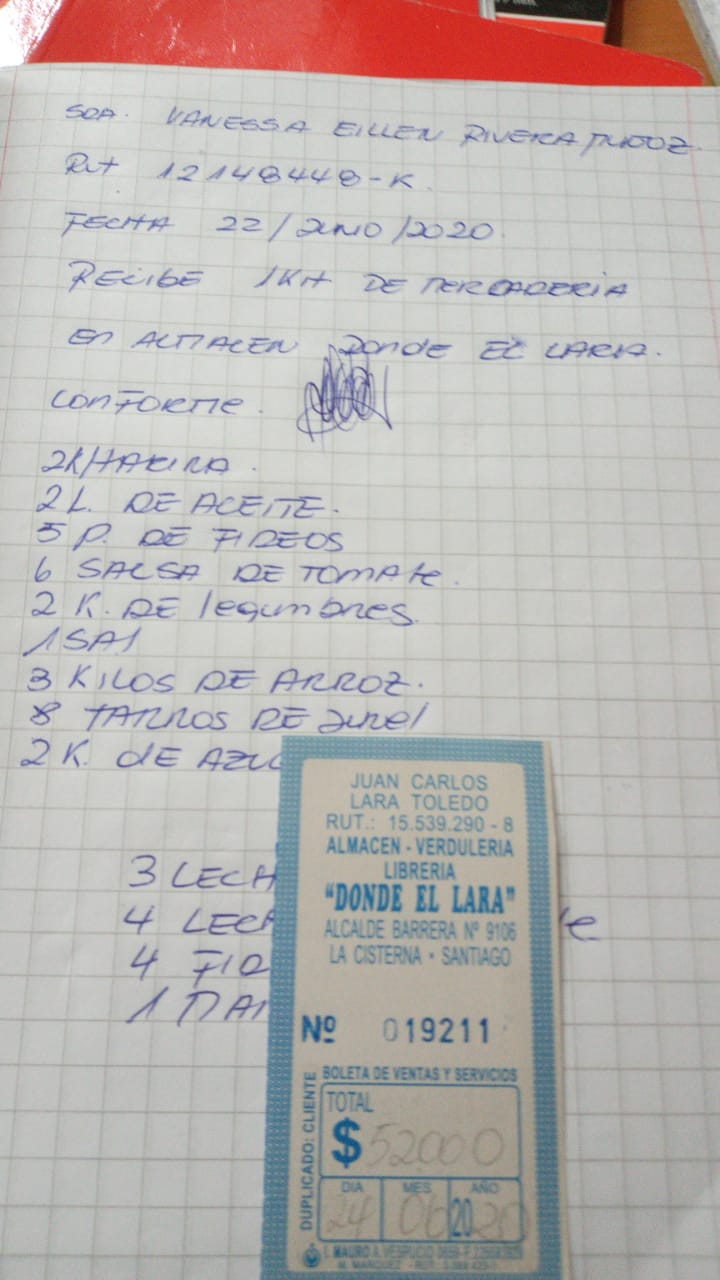 SRA. VANESSA EILLEN RIVERA MUÑOZ.
Rut 12148448-K.
FECHA 22/JUNIO/2020.
RECIBE 1 KIT DE MERCADERIA
EN ALMACEN DONDE EL LARA.
CONFORME.
2K/HARINA.
2 L. DE ACEITE.
5 P. DE FIDEOS
6 SALSA DE TOMATE.
2 K. DE legumbres.
1 SAl
3 KILOS DE ARROZ.
8 TARROS DE JUREl
2 K. dE AZUC
3 LECH
4 LECH
4 FID
1 MAN
JUAN CARLOS
LARA TOLEDO
RUT.: 15.539.290 - 8
ALMACEN - VERDULERIA
LIBRERIA
"DONDE EL LARA"
ALCALDE BARRERA Nº 9106
LA CISTERNA - SANTIAGO
Nº 019211
BOLETA DE VENTAS Y SERVICIOS
DUPLICADO: CLIENTE
TOTAL
$ 52000
DIA MES AÑO
24 06 2020